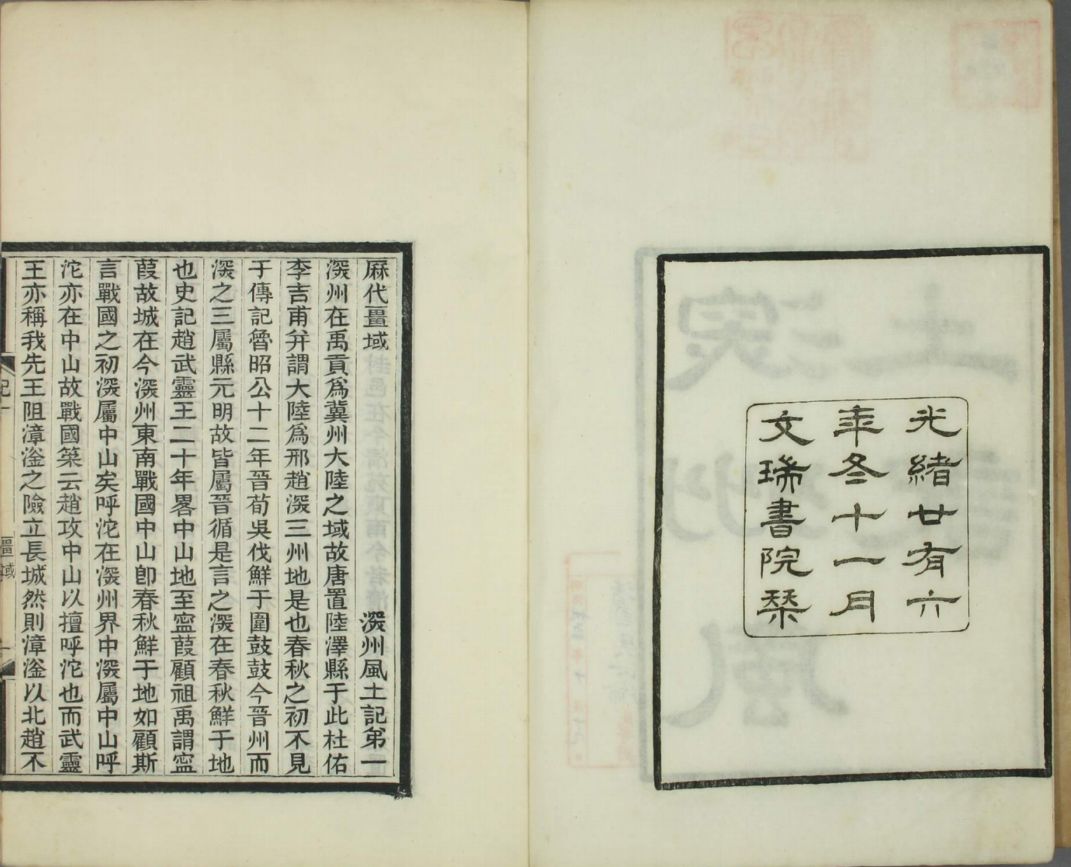 光緒廿有六
年冬十一月
文瑞書院栞
厤代畺域 深州風土記弟一
深州在禹貢爲冀州大陸之域故唐置陸澤縣于此杜佑
李吉甫幷謂大陸爲邢趙深三州地是也春秋之初不見
于傳記魯昭公十二年晉荀吳伐鮮于圍鼓鼓今晉州而
深之三屬縣元明故皆屬晉循是言之深在春秋鮮于地
也史記趙武靈王二十年畧中山地至寍葭顧祖禹謂寍
葭故城在今深州東南戰國中山卽春秋鮮于地如顧斯
言戰國之初深屬中山矣呼沱在深州界中深屬中山呼
沱亦在中山故戰國策云趙攻中山以擅呼沱也而武靈
王亦稱我先王阻漳滏之險立長城然則漳滏以北趙不
記一
畺域
一